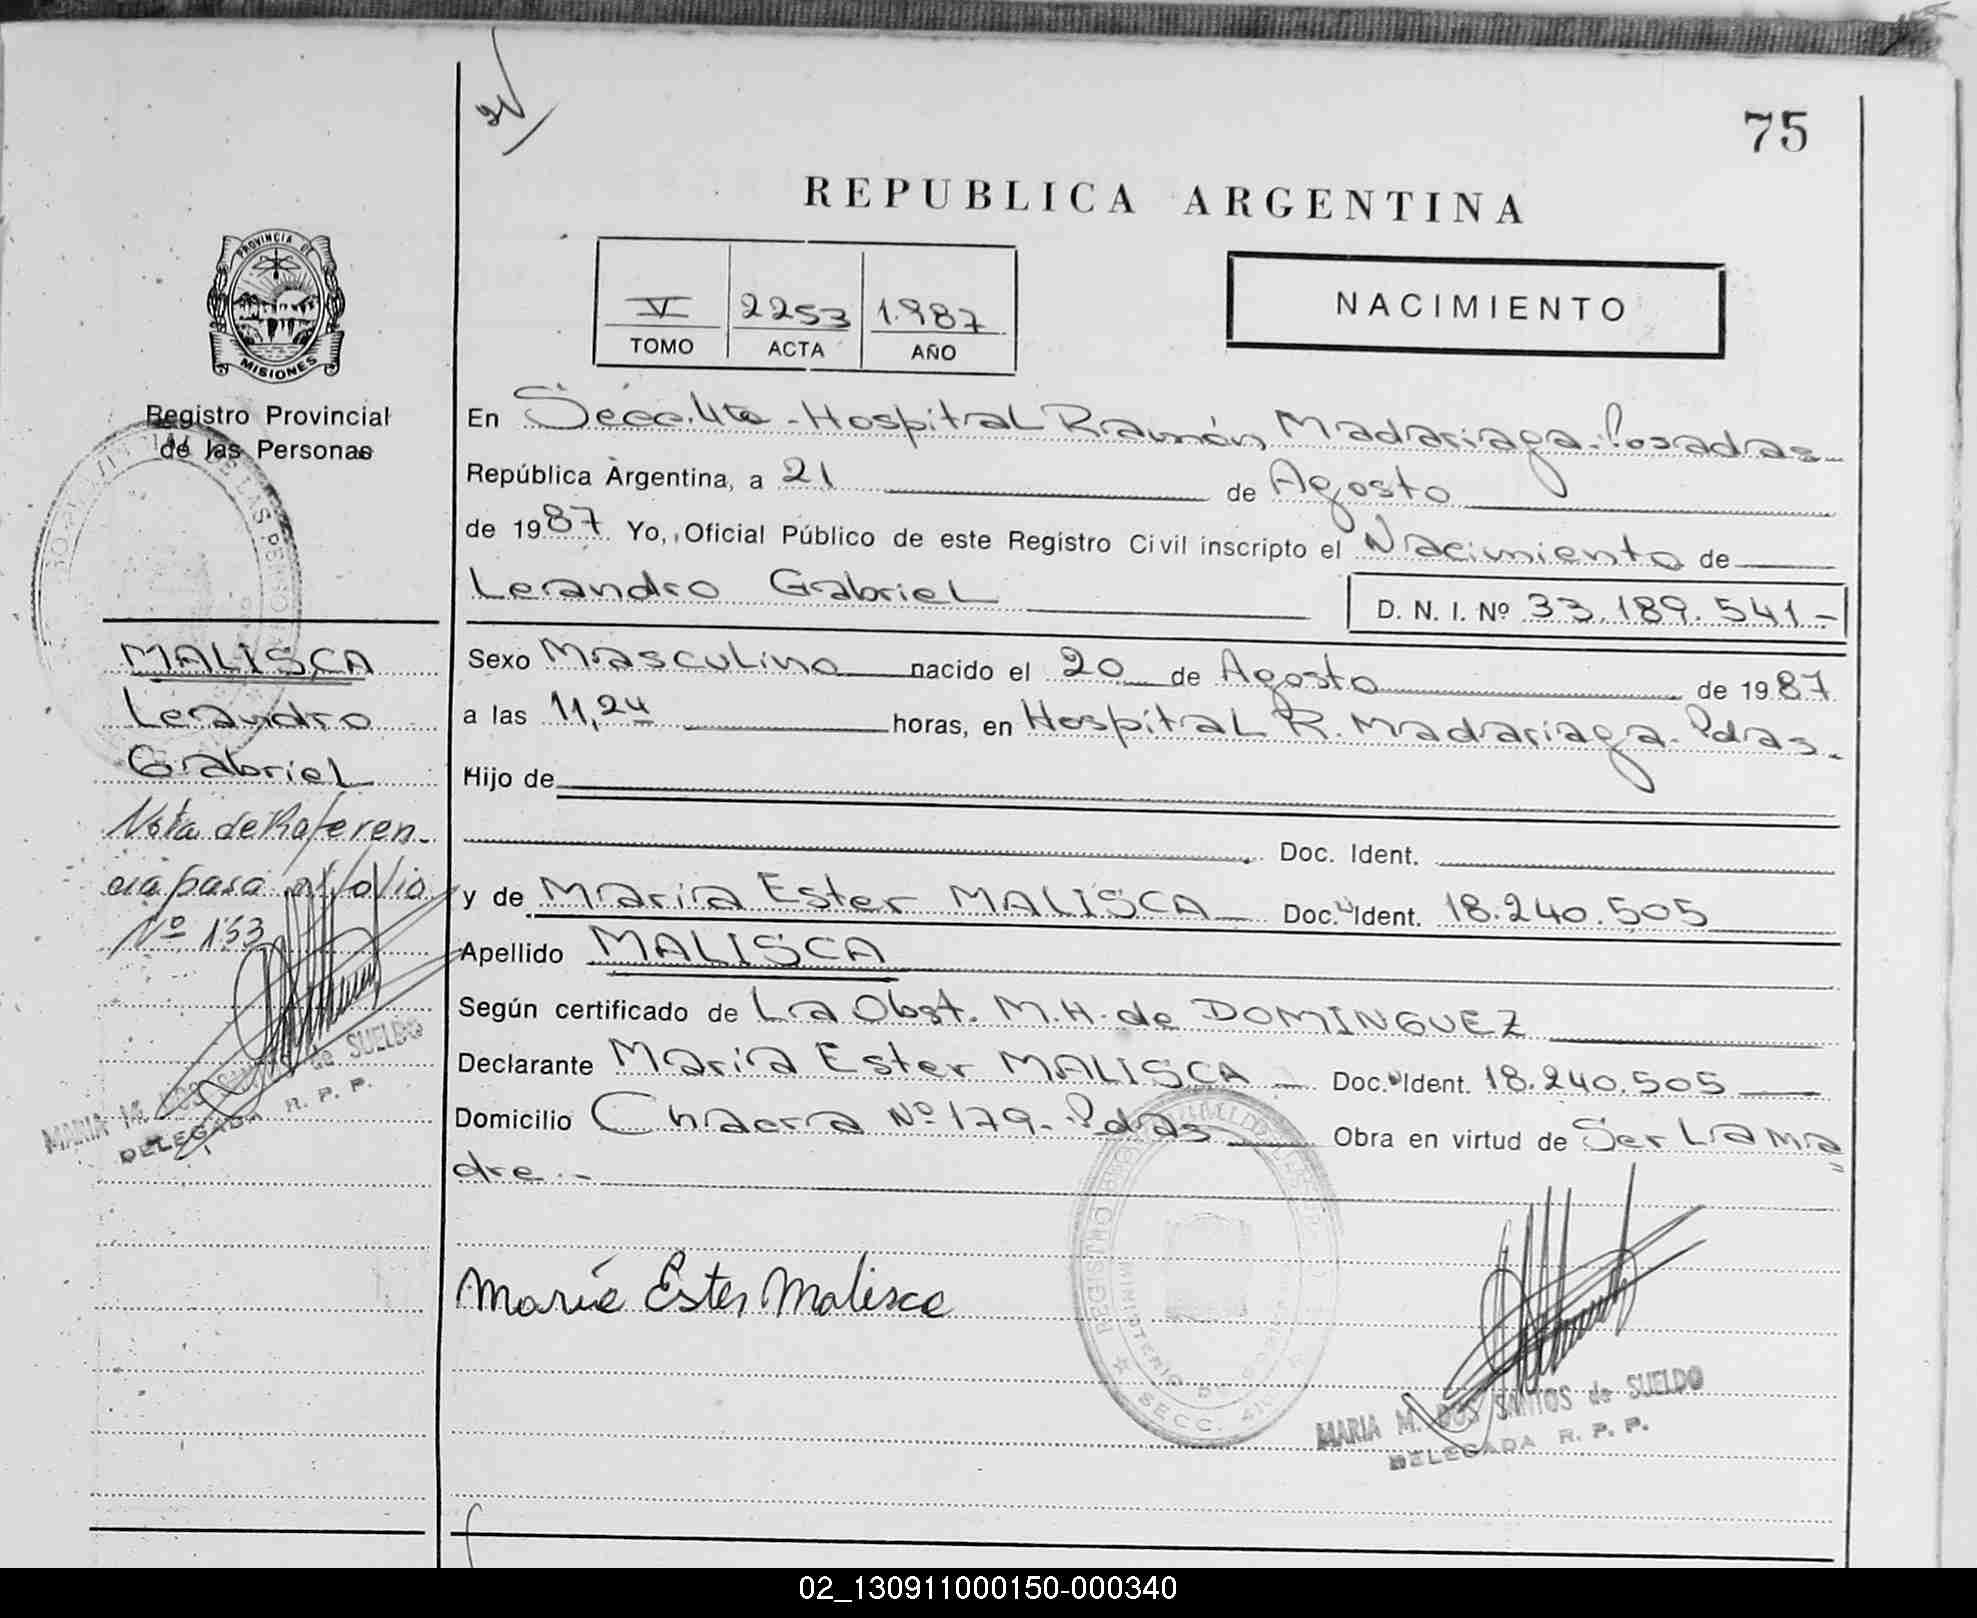 75
REPUBLICA ARGENTINA
V 2253 1.987
TOMO ACTA AÑO
NACIMIENTO
PROVINCIA DE
MISIONES
Registro Provincial
de las Personas
MALISCA
Leandro
Gabriel
Nota de Referen-
cia pasa al folio
Nº 133
MARIA M. DOS SANTOS de SUELDO
DELEGADA R. P. P.
En Secc. 4ta - Hospital Ramón Madariaga - Posadas
República Argentina, a 21 de Agosto
de 1987 Yo, Oficial Público de este Registro Civil inscripto el Nacimiento de
Leandro Gabriel D. N. I. Nº 33.189.541-
Sexo Masculino nacido el 20 de Agosto de 1987
a las 11,24 horas, en Hospital R. Madariaga - Pdas.
Hijo de
Doc. Ident.
y de María Ester MALISCA Doc. Ident. 18.240.505
Apellido MALISCA
Según certificado de La Obst. M.H. de DOMINGUEZ
Declarante María Ester MALISCA Doc. Ident. 18.240.505
Domicilio Chacra Nº 179 - Pdas Obra en virtud de Ser La Ma
dre.-
María Ester Malisca
REGISTRO
SECC. 4ta
MARIA M. DOS SANTOS de SUELDO
DELEGADA R. P. P.
02_130911000150-000340